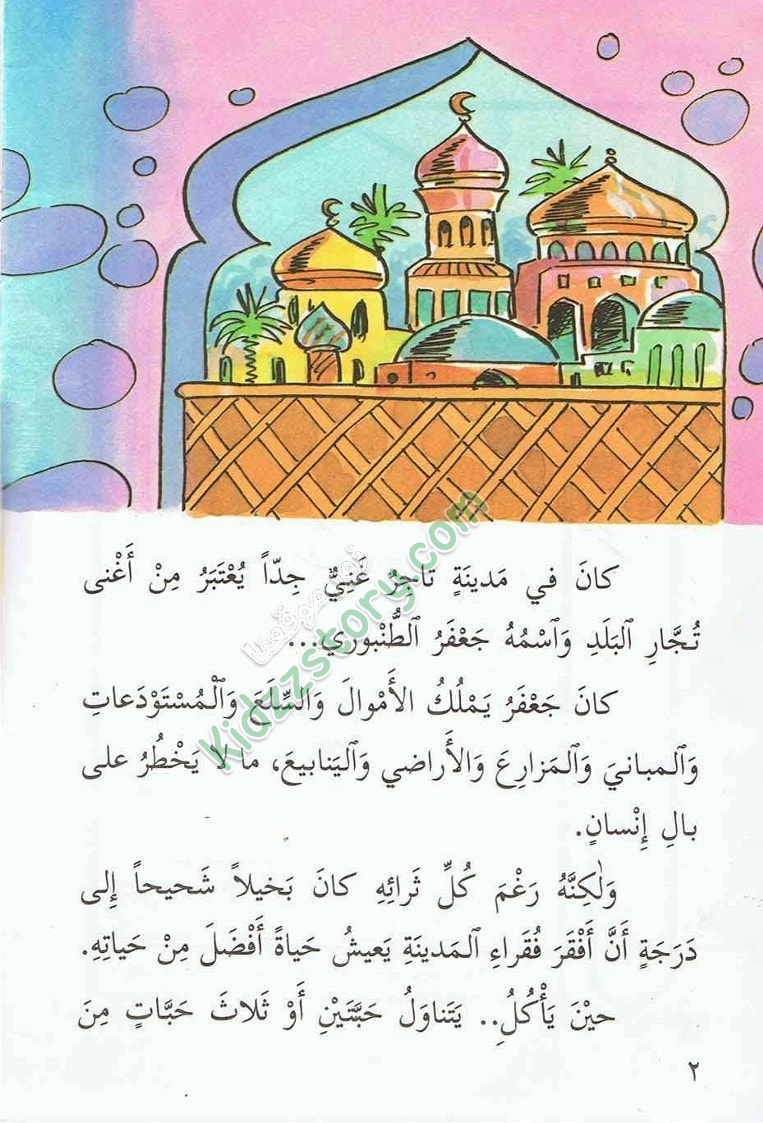 كانَ في مَدينَةٍ تاجِرٌ غَنِيٌّ جِدّاً يُعْتَبَرُ مِنْ أَغْنى
تُجَّارِ ٱلبَلَدِ وَٱسْمُهُ جَعْفَرُ ٱلطُّنْبوري...
كانَ جَعْفَرُ يَمْلُكُ الأَمْوالَ وَالسِّلَعَ وَٱلْمُسْتَوْدَعاتِ
وَٱلمبانيَ وَٱلمَزارِعَ وَالأَراضي وَٱليَنابيعَ، ما لا يَخْطُرُ على
بالِ إِنْسانٍ.
وَلٰكِنَّهُ رَغْمَ كُلِّ ثَرائِهِ كانَ بَخيلاً شَحيحاً إِلى
دَرَجَةٍ أَنَّ أَفْقَرَ فُقَراءِ ٱلمَدينَةِ يَعيشُ حَياةً أَفْضَلَ مِنْ حَياتِهِ.
حيْنَ يَأْكُلُ.. يَتَناوَلُ حَبَّتَيْنِ أَوْ ثَلاثَ حَبَّاتٍ مِنَ
٢
Kidzzstory.com